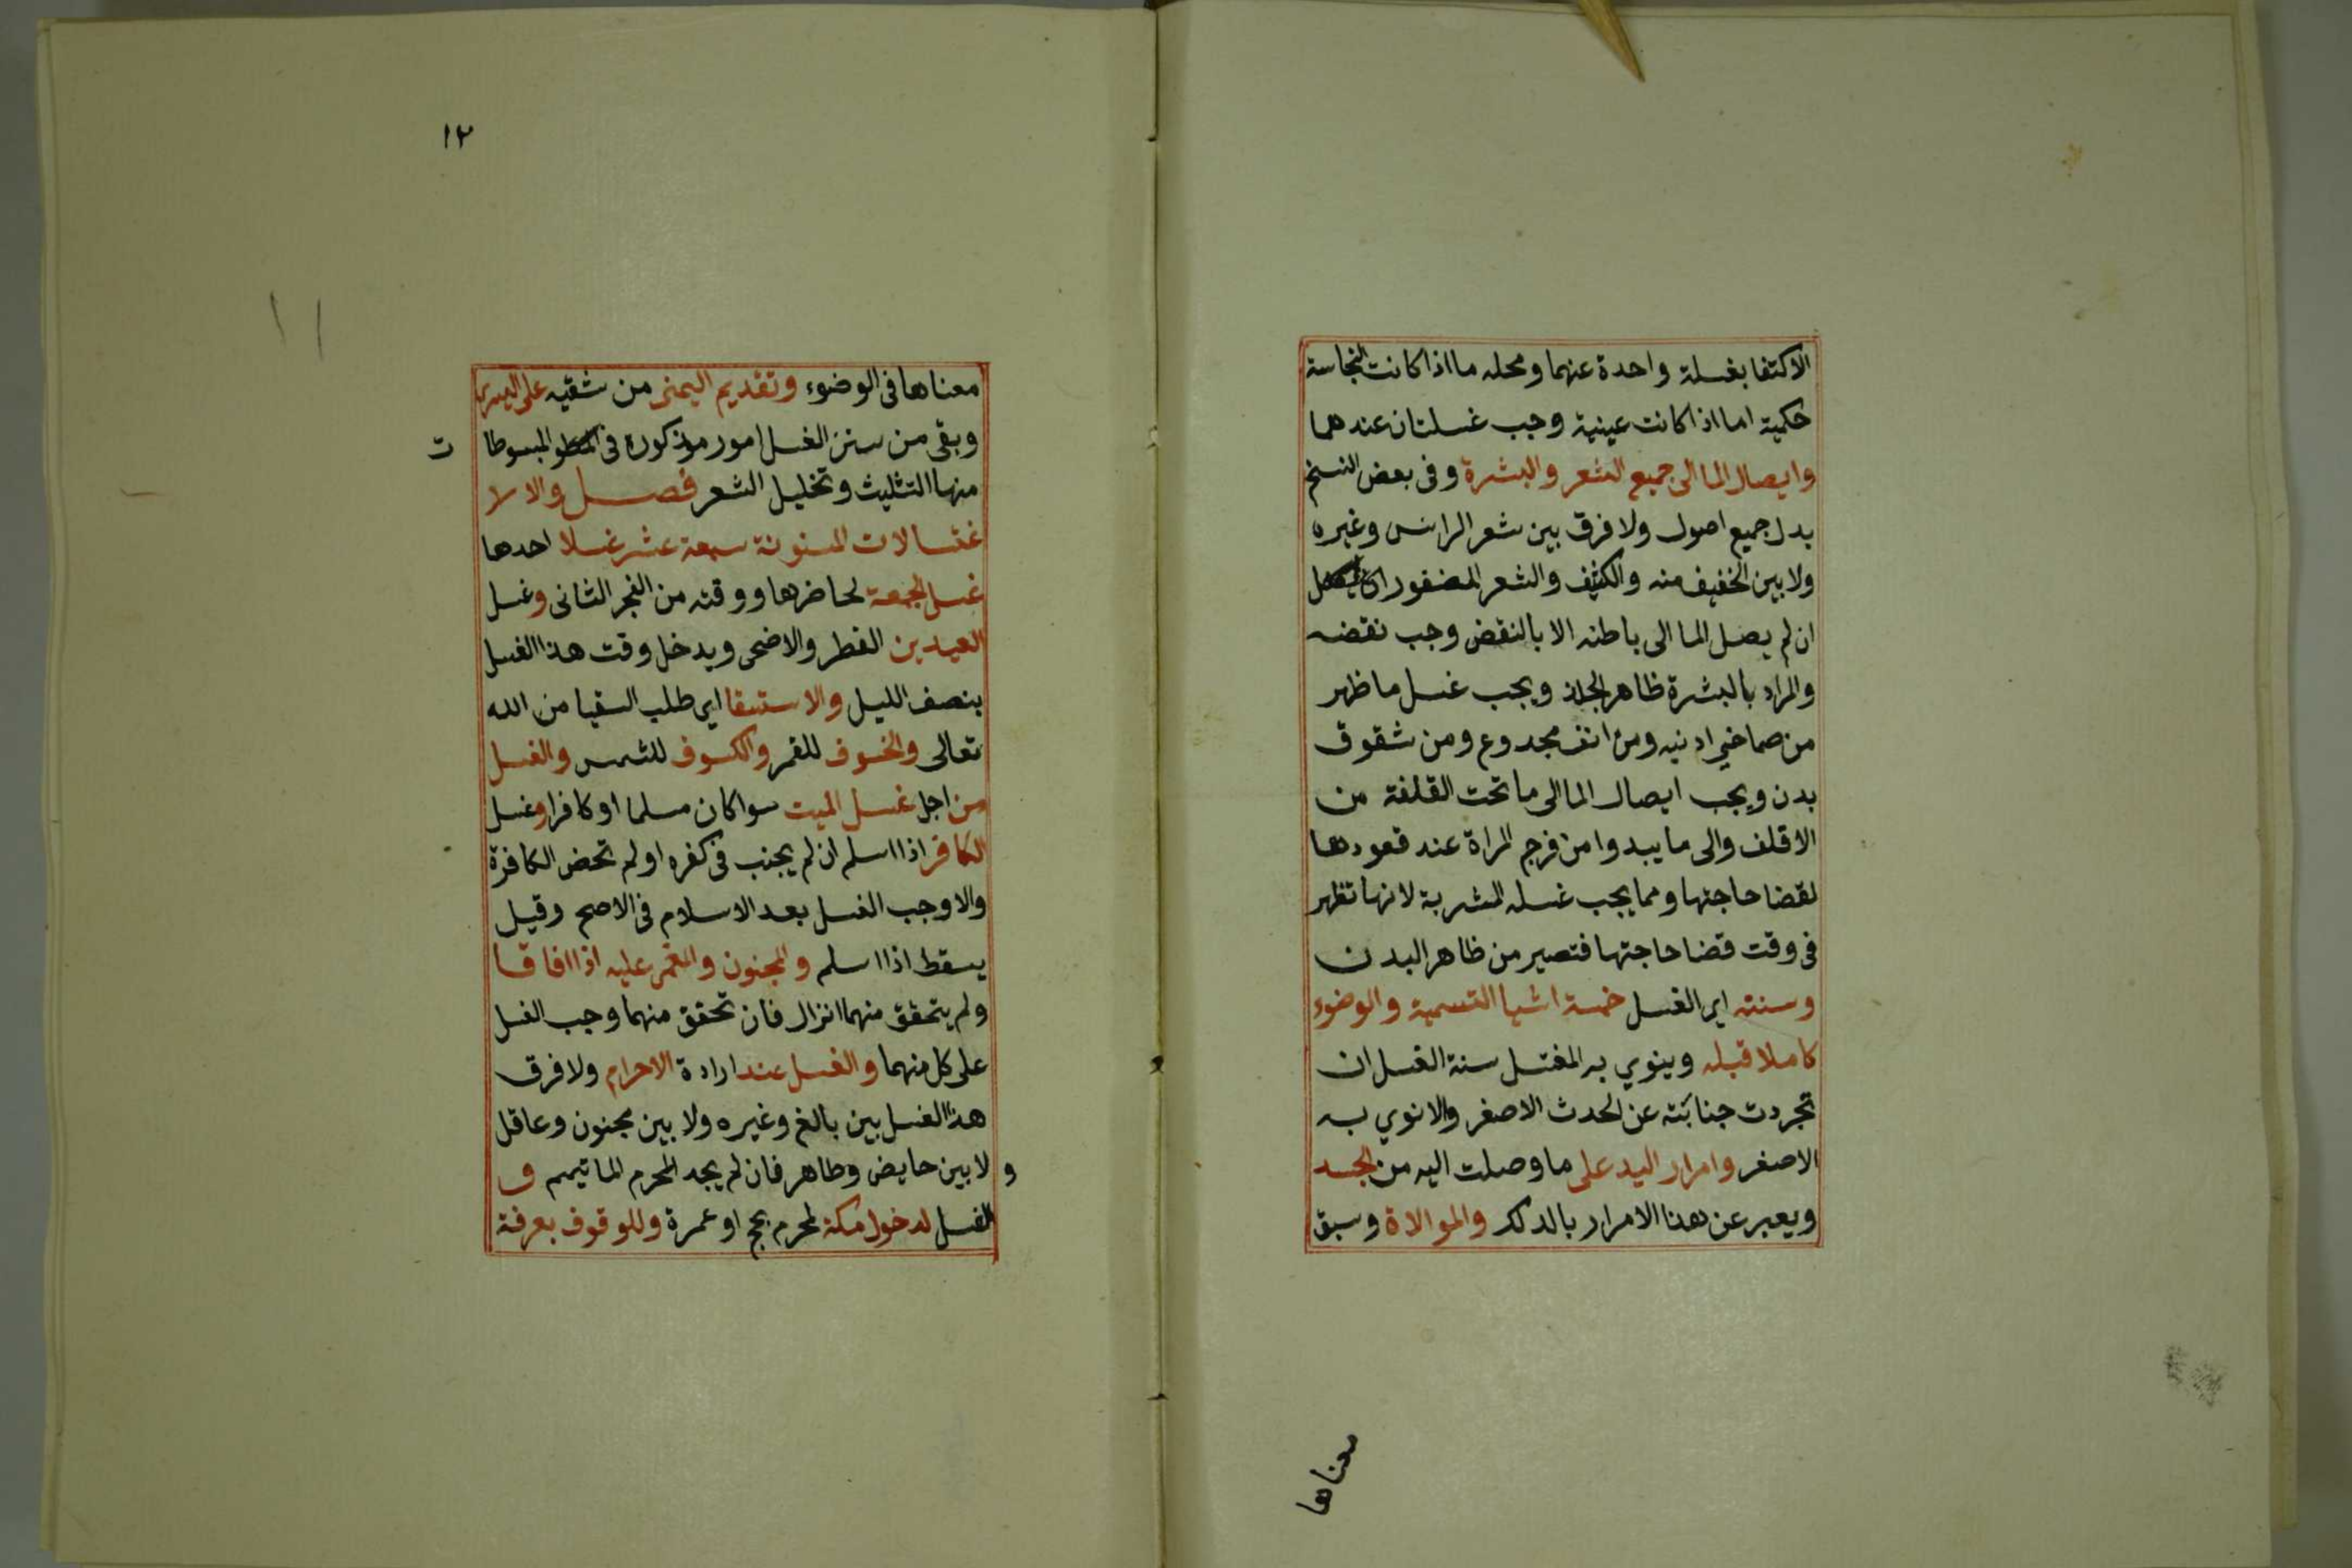 الاكتفا بغسلة واحدة عنهما ومحله ما اذا كانت النجاسة
حكمية اما اذا كانت عينية وجب غسلتان عندهما
وايصال الما الى جميع الشعر والبشرة وفى بعض النسخ
بدل جميع اصول ولا فرق بين شعر الراس وغيره
ولا بين الخفيف منه والكثيف والشعر المضفور
ان لم يصل الما الى باطنه الا بالنقض وجب نقضه
والمراد بالبشرة ظاهر الجلد ويجب غسل ما ظهر
من صماخي اذنيه ومن انف مجدوع ومن شقوق
بدن ويجب ايصال الما الى ما تحت القلفة من
الاقلف والى ما يبدوا من فرج المراة عند قعودها
لقضا حاجتها ومما يجب غسله المشربة لانها تظهر
فى وقت قضا حاجتها فتصير من ظاهر البدن
وسننه اي الغسل خمسة اشيا التسمية والوضوء
كاملا قبله وينوي به المغتسل سنة الغسل ان
تجردت جنابته عن الحدث الاصغر والا نوي به
الاصغر وامرار اليد على ما وصلت اليه من الجسد
ويعبر عن هذا الامرار بالدلك والموالاة وسبق
معناها
١٢
معناها فى الوضوء وتقديم اليمنى من شقيه على اليسرى
وبقى من سنن الغسل امور مذكورة فى المبسوطا
ت
منها التثليث وتخليل الشعر فصل والا
غتسالات المسنونة سبعة عشر غسلا احدها
غسل الجمعة لحاضرها ووقته من الفجر الثانى وغسل
العيدين الفطر والاضحى ويدخل وقت هذا الغسل
بنصف الليل والاستسقا اي طلب السقيا من الله
تعالى والخسوف للقمر والكسوف للشمس والغسل
من اجل غسل الميت سوا كان مسلما او كافرا وغسل
الكافر اذا اسلم ان لم يجنب فى كفره او لم تحض الكافرة
والا وجب الغسل بعد الاسلام فى الاصح وقيل
يسقط اذا اسلم والمجنون والمغمى عليه اذا افاقا
ولم يتحقق منهما انزال فان تحقق منهما وجب الغسل
على كل منهما والغسل عند ارادة الاحرام ولا فرق
هذا الغسل بين بالغ وغيره ولا بين مجنون وعاقل
و لا بين حايض وطاهر فان لم يجد المحرم الما تيمم و
الغسل لدخول مكة لمحرم بحج او عمرة وللوقوف بعرفة